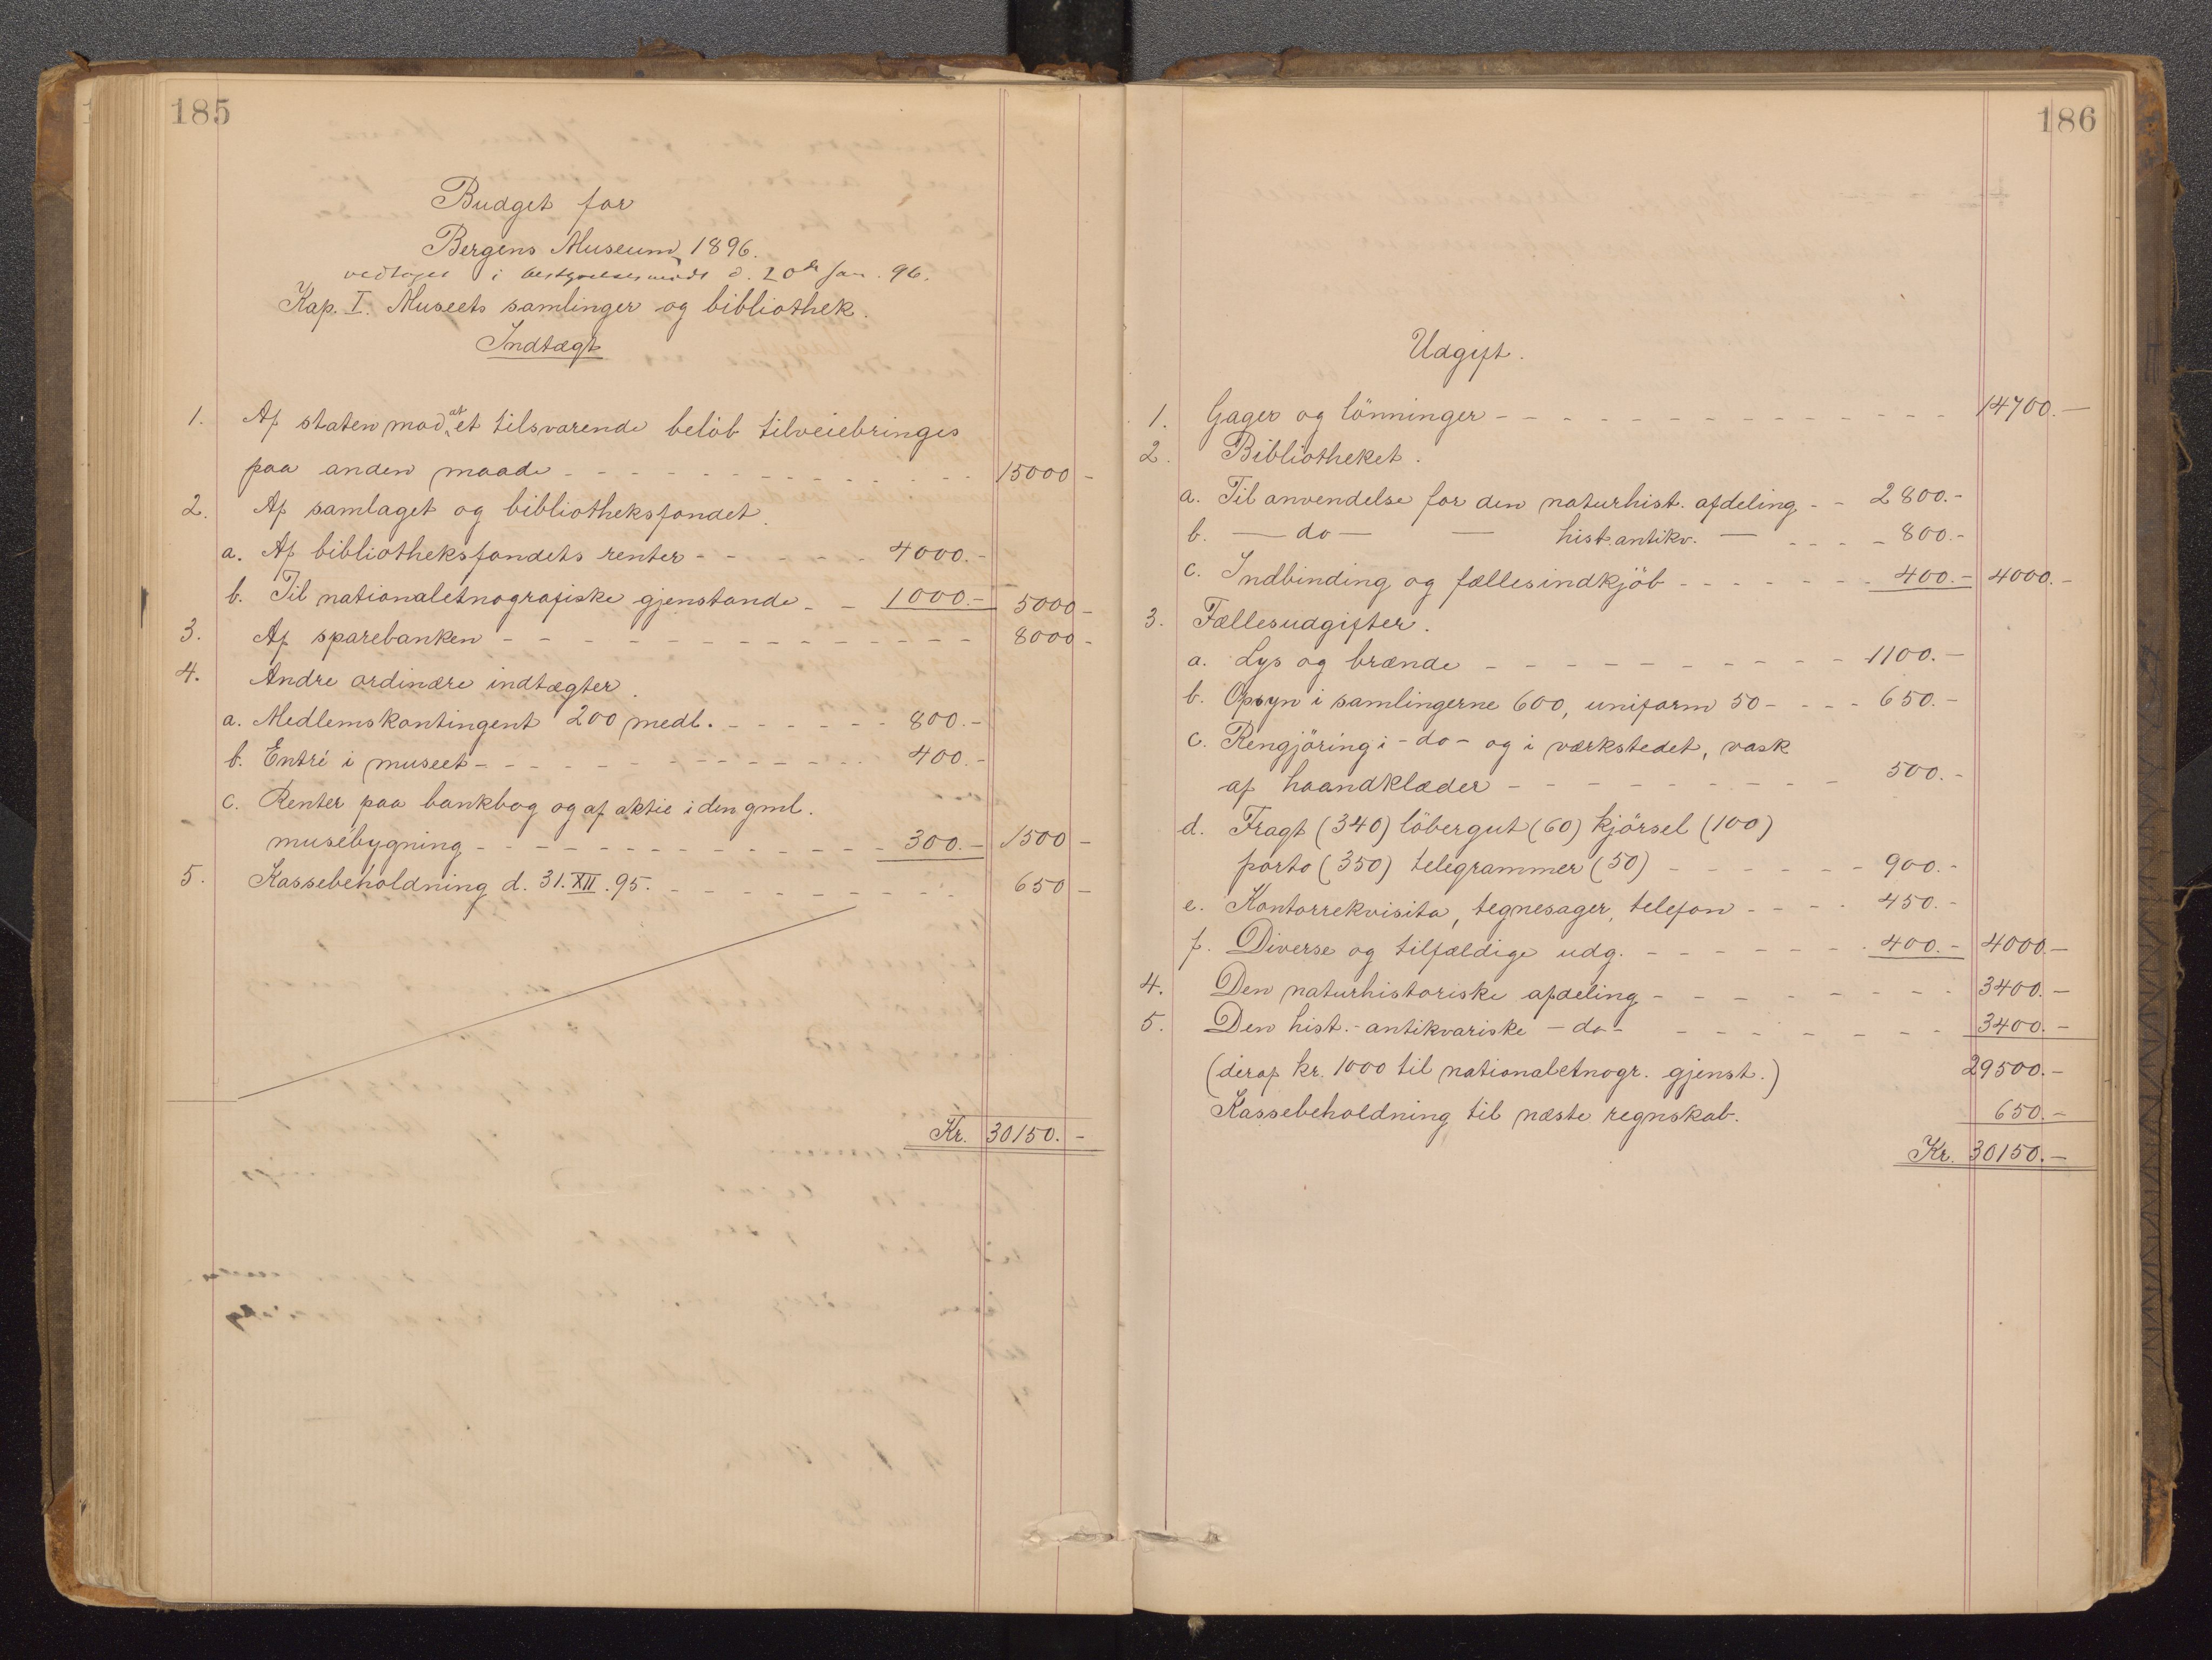 185
Budget for
Bergens Museum, 1896.
vedtaget i bestyrelsesmöde d. 20de Jan. 96.
Kap. I. Museets samlinger og bibliothek.
Indtægt
1. Af staten mod at et tilsvarende belöb tilveiebringes
paa anden maade - - - 15000 -
2. Af samlaget og bibliotheksfondet.
a. Af bibliotheksfondets renter - - - 4000.-
b. Til nationaletnografiske gjenstande - - 1000.- 5000 -
3. Af sparebanken - - - 8000 -
4. Andre ordinære indtægter.
a. Medlemskontingent 200 medl. - - - 800.-
b. Entré i museet - - - 400.-
c. Renter paa bankbog og af aktie i den gml.
musébygning - - - 300.- 1500 -
5. Kassebeholdning d. 31.XII.95. - - - 650 -
Kr. 30150.-
186
Udgift.
1. Gager og lönninger - - - 14700.-
2. Bibliotheket.
a. Til anvendelse for den naturhist. afdeling - - 2800.-
b. — do — — hist. antikv. — - - - 800.-
c. Indbinding og fællesindkjöb - - - 400.- 4000.-
3. Fællesudgifter.
a. Lys og brænde - - - 1100.-
b. Opsyn i samlingerne 600, uniform 50 - - - 650.-
c. Rengjöring i - do - og i værkstedet, vask
af haandklæder - - - 500.-
d. Fragt (340) löbergut (60) kjörsel (100)
porto (350) telegrammer (50) - - - 900.-
e. Kontorrekvisita, tegnesager, telefon - - - 450.-
f. Diverse og tilfældige udg. - - - 400.- 4000.-
4. Den naturhistoriske afdeling - - - 3400.-
5. Den hist.-antikvariske - do - - - - 3400.-
(deraf kr. 1000 til nationaletnogr. gjenst.) 29500.-
Kassebeholdning til næste regnskab. 650.-
Kr. 30150.-